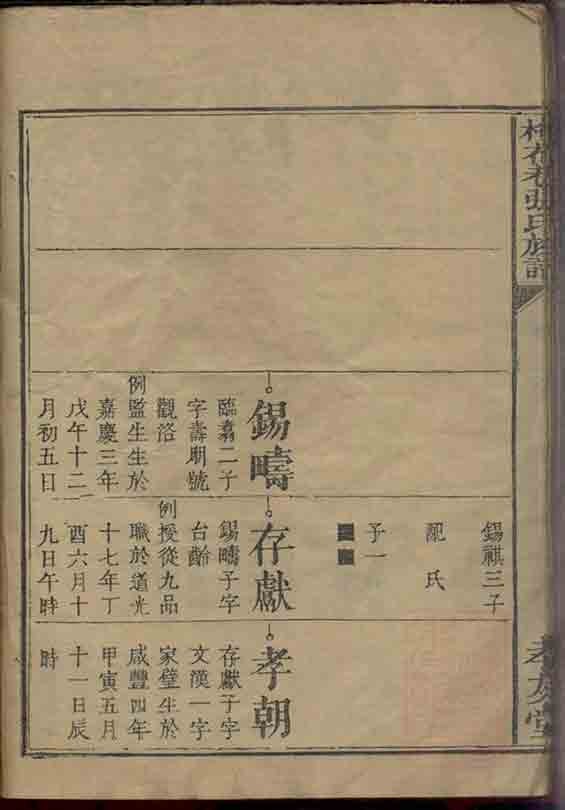 張氏族譜
孝友堂
錫祺三子
配氏
子一
錫疇
臨翥二子
字壽朋號
觀洛
例監生生於
嘉慶三年
戊午十二
月初五日
存獻
錫疇子字
台齡
例授從九品
職於道光
十七年丁
酉六月十
九日午時
孝朝
存獻子字
文漢一字
家璧生於
咸豐四年
甲寅五月
十一日辰
時